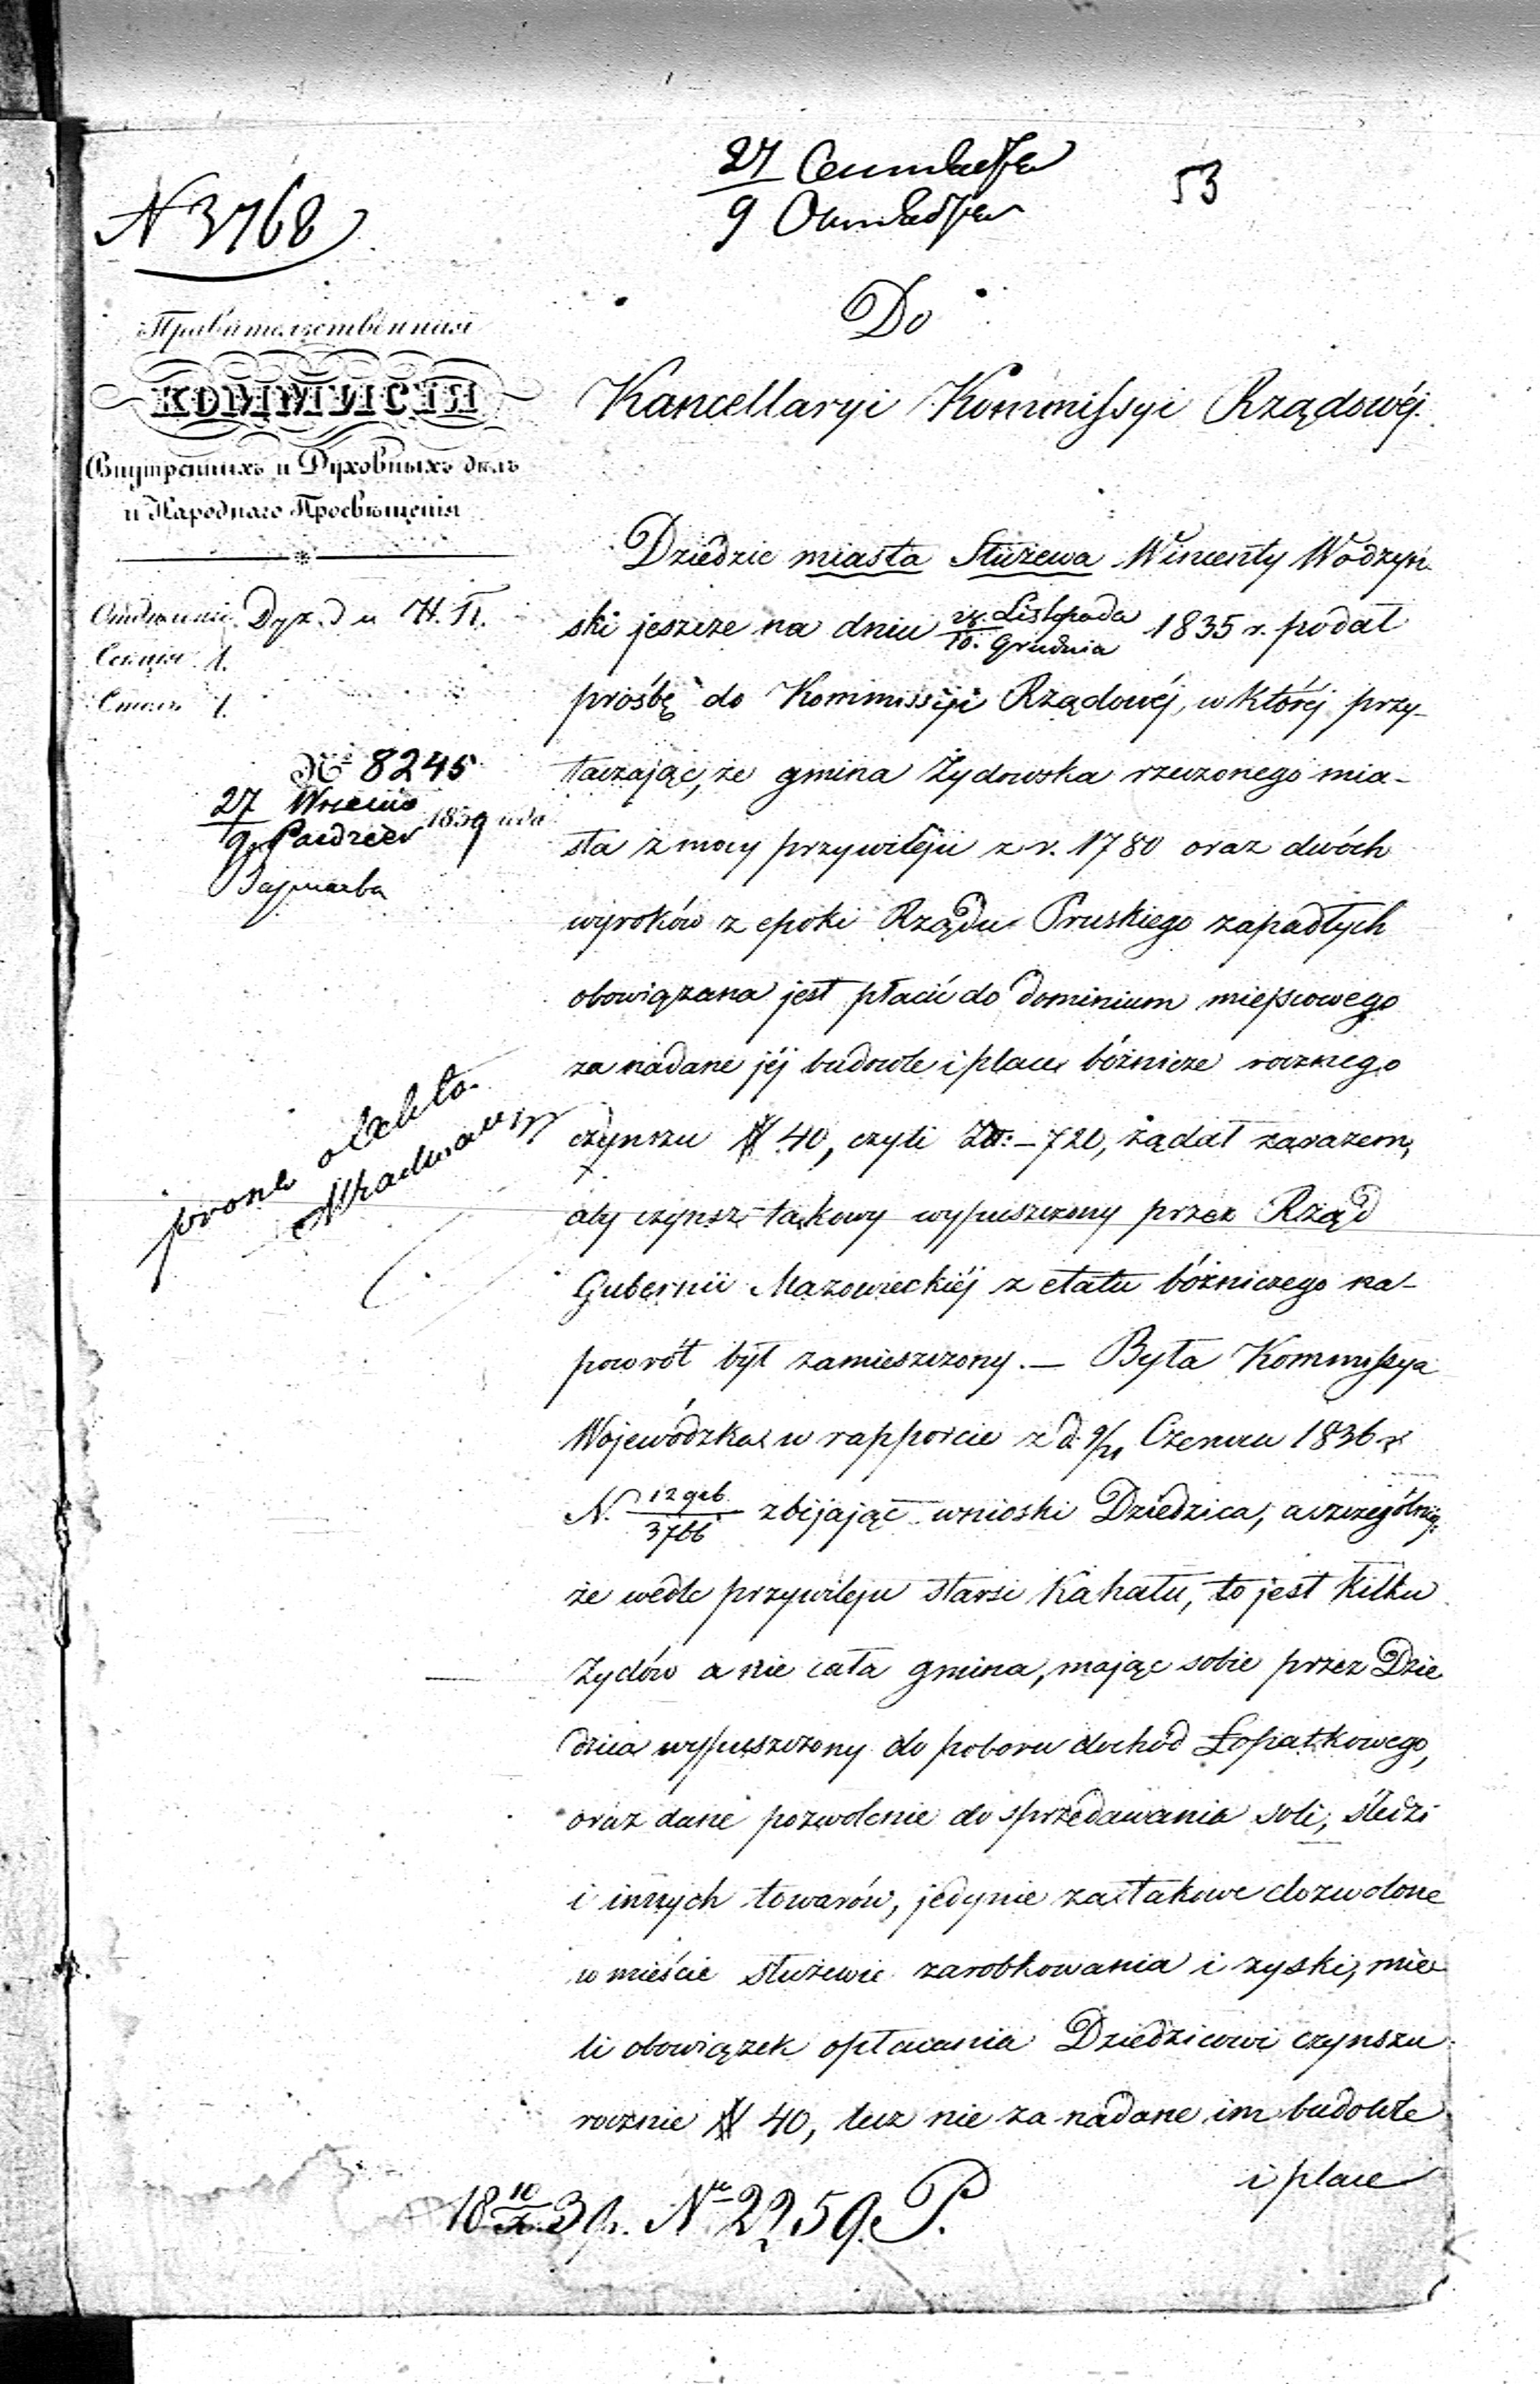 27 Сентября
9 Октября
53
N 3768
Правительственная
КОММИСІЯ
Внутреннихъ и Духовныхъ делъ
и Народнаго Просвѣщенія
Отделеніе Дух. д и Н. П.
Секція 1.
Столъ 1.
№ 8245
27 Wrzesnia
9 Pazdzier 1839 года
Варшава
prosić o akta
Do
Kancellaryi Kommissyi Rządowéj.
Dziedzic miasta Służewa Wincenty Wodzyń
ski jeszcze na dniu 28. Listopada / 10. Grudnia 1835 r. podał
prośbę do Kommissyi Rządowéj, w któréj przy-
taczając, że gmina Żydowska rzeczonego mia-
sta z mocy przywileju z r. 1780 oraz dwóch
wyroków z epoki Rządu Pruskiego zapadłych
obowiązana jest płacić do dominium miejscowego
za nadane jéj budowle i place bóżnicze rocznego
czynszu # 40, czyli Zł: – 720, żądał zarazem,
aby czynsz takowy wypuszczony przez Rząd
Gubernii Mazowieckiéj z etatu bóżniczego na-
powrót był zamieszczony. — Była Kommissya
Wojewódzka w rapporcie z d. 9/21 Czerwca 1836 r.
N. 12926 / 3766 zbijając wnioski Dziedzica, a szczególniéj,
że wedle przywileju starsi Kahału, to jest kilku
Żydów a nie cała gmina, mając sobie przez Dzie
dzica wypuszczony do poboru dochód Łopatkowego,
oraz dane pozwolenie do sprzedawania soli, śledzi
i innych towarów, jedynie za takowe dozwolone
w mieście Służewie zarobkowania i zyski, mie
li obowiązek opłacania Dziedzicowi czynszu
rocznie # 40, lecz nie za nadane im budowle
i place
18 10/X 39. Nr 2259. P.